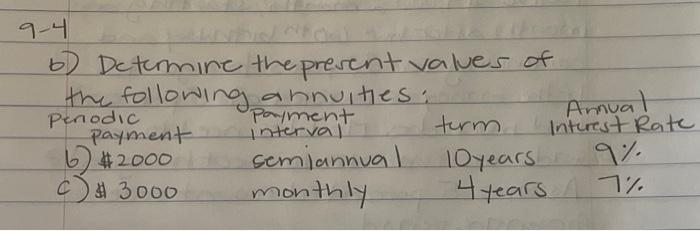 9-4
b) Determine the present values of
the following annuities:
Periodic Payment Annual
payment interval term Interest Rate
b) $2000 semiannual 10 years 9%
c) $3000 monthly 4 years 7%